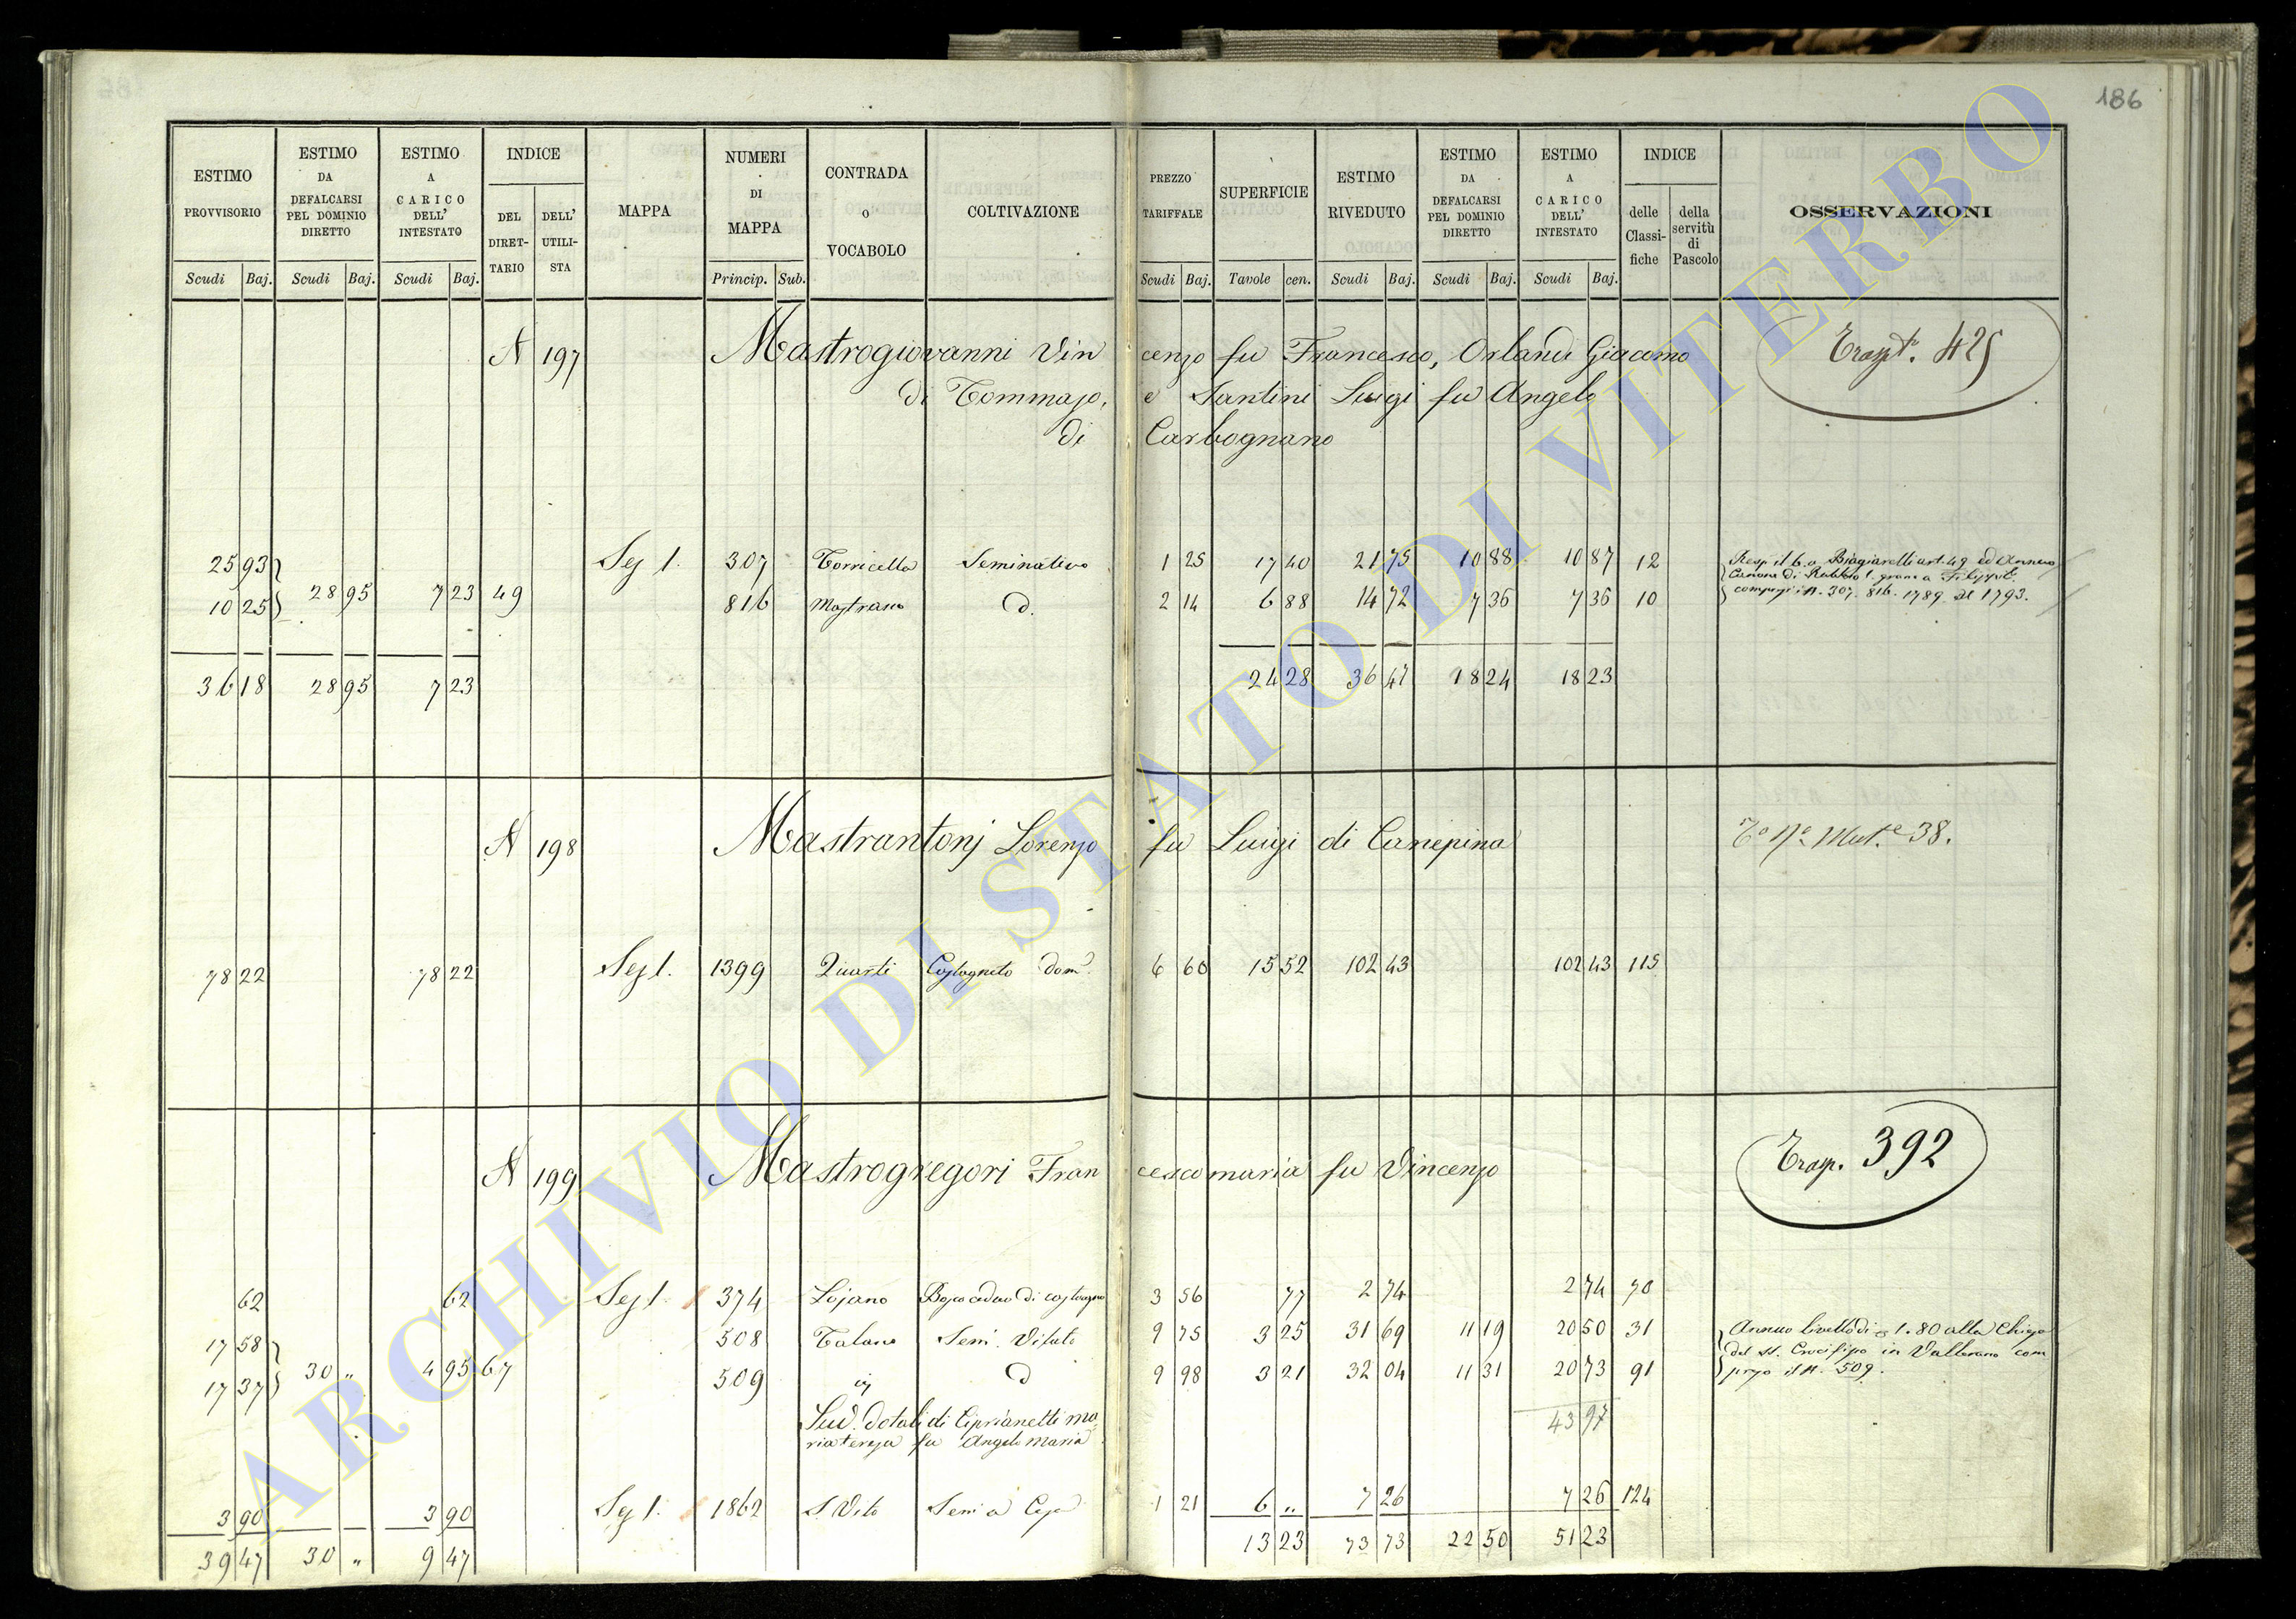 186
ESTIMO PROVVISORIO
ESTIMO DA DEFALCARSI PEL DOMINIO DIRETTO
ESTIMO A CARICO DELL' INTESTATO
INDICE
DEL DIRET-TARIO
DELL' UTILI-STA
MAPPA
NUMERI DI MAPPA
CONTRADA O VOCABOLO
COLTIVAZIONE
PREZZO TARIFFALE
SUPERFICIE
ESTIMO RIVEDUTO
ESTIMO DA DEFALCARSI PEL DOMINIO DIRETTO
ESTIMO A CARICO DELL' INTESTATO
INDICE
delle Classi-fiche
della servitù di Pascolo
OSSERVAZIONI
Scudi Baj. Scudi Baj. Scudi Baj. Princip. Sub. Scudi Baj. Tavole cen. Scudi Baj. Scudi Baj. Scudi Baj.
N 197 Mastrogiovanni Vincenzo fu Francesco, Orlandi Giacomo Trasp. 425
di Tommaso, e Santini Luigi fu Angelo
di Carbognano
25 93 Sez 1. 307 Torricella Seminativo 1 25 17 40 21 75 10 88 10 87 12
10 25 28 95 7 23 49 816 Mastrano d. 2 14 6 88 14 72 7 36 7 36 10
Biagiarelli art. 49 ed Annuo
Canone di Rubbio 1. grano a
307. 816. 1789 al 1793.
36 18 28 95 7 23 24 28 36 47 18 24 18 23
N 198 Mastrantonj Lorenzo fu Luigi di Canepina Mut. 38.
78 22 78 22 Sez 1. 1399 Quarti Castagneto dom. 6 60 15 52 102 43 102 43 115
N 199 Mastrogregori Francescomaria fu Vincenzo Trasp. 392
62 62 Sez 1. 374 Lojano Bosco ceduo di castagno 3 56 77 2 74 2 74 70
17 58 508 Talano Sem. Vitato 9 75 3 25 31 69 11 19 20 50 31
17 37 30 „ 4 95 67 509 ivi d 9 98 3 21 32 04 11 31 20 73 91
Annuo livello di 1.80 alla Chiesa
del SS. Crocifisso in Vallerano com
preso il N. 509.
Sud. dotali di Ciprianetti Ma
riateresa fu Angelo Maria
43 97
3 90 3 90 Sez 1. 1862 S Vito Sem a 1 21 6 „ 7 26 7 26 124
39 47 30 „ 9 47 13 23 73 73 22 50 51 23
ARCHIVIO DI STATO DI VITERBO